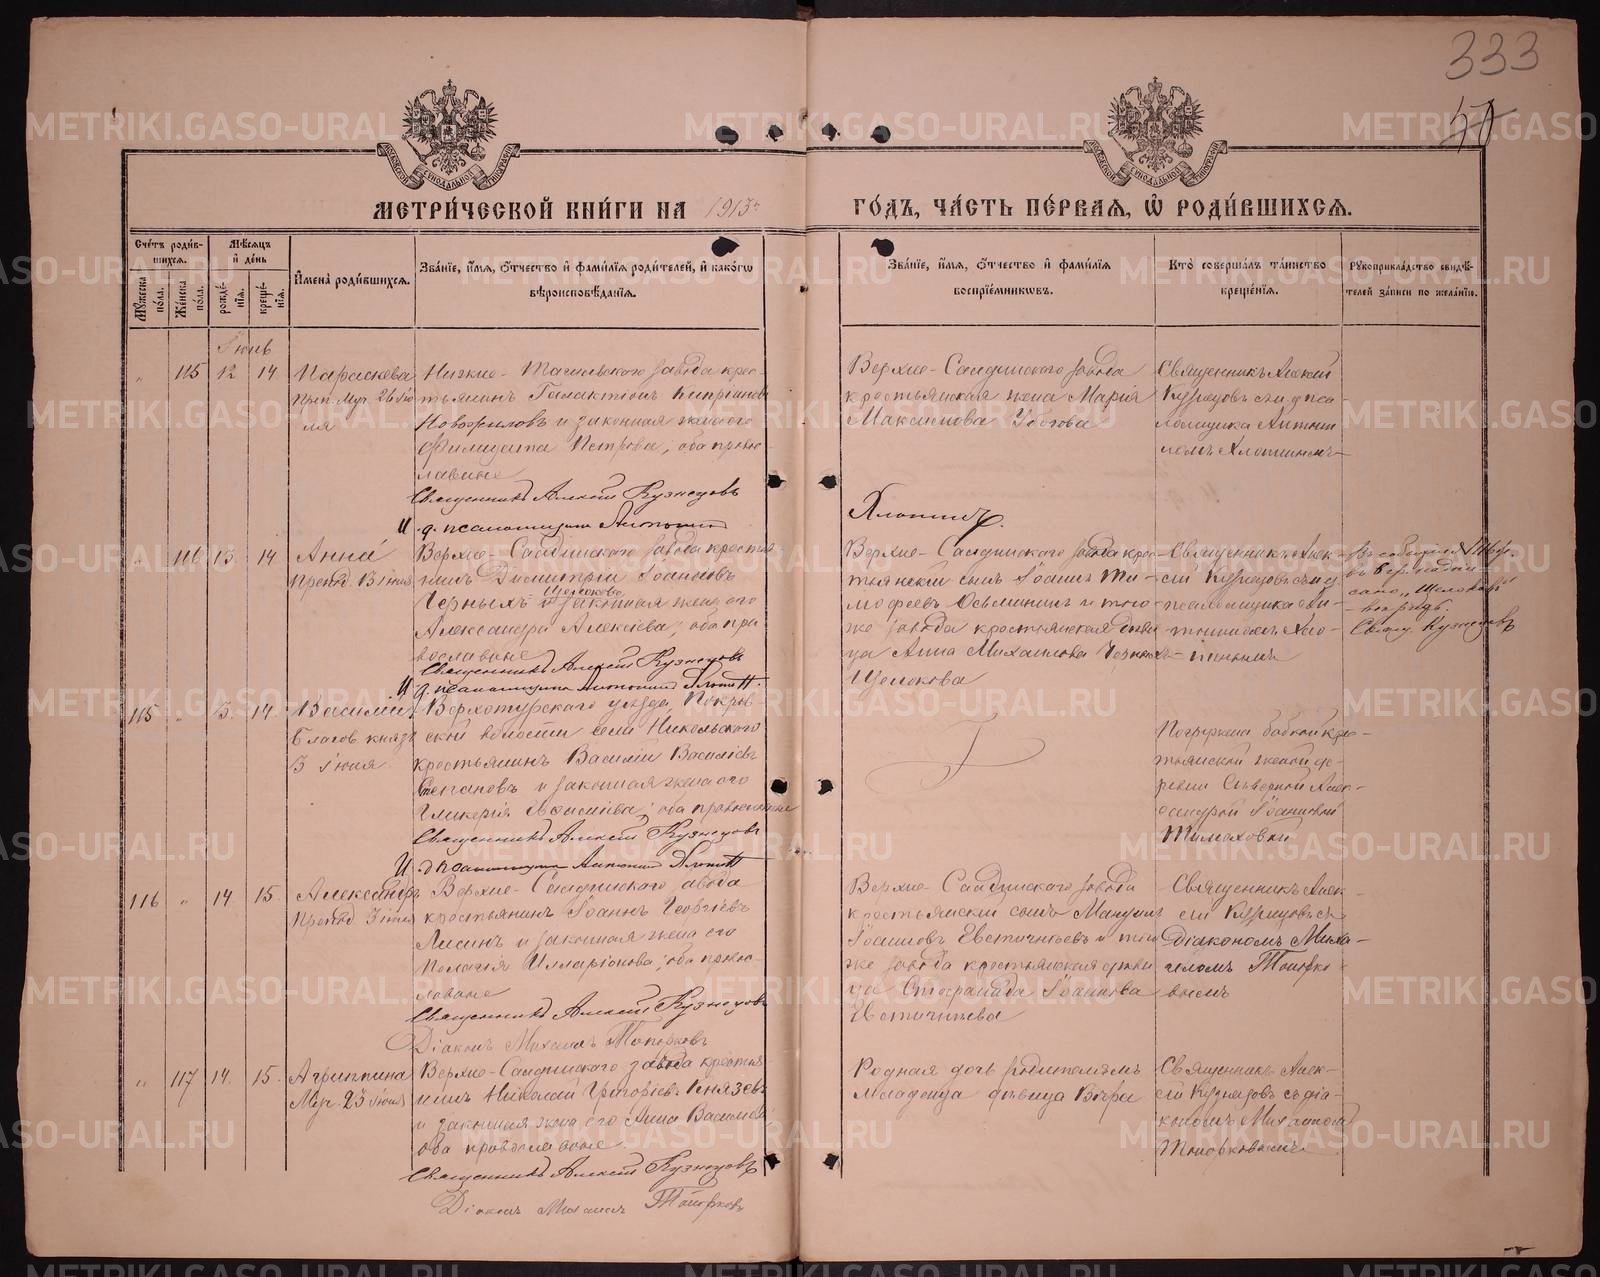 333
50
МЕТРИ́ЧЕСКОЙ КНИ́ГИ НА 1913 г.
ГО́ДЪ, ЧА́СТЬ ПЕ́РВАЯ, Ѡ РОДИ́ВШИХСЯ.
Сче́тъ роди́вшихся.
Мѣ́сяцъ и де́нь
Му́жеска по́ла.
Же́нска по́ла.
рожде́нія.
креще́нія.
Имена̀ роди́вшихся.
Зва́ніе, и́мя, о́тчество и фами́лія роди́телей, и како́гѡ
вѣроисповѣ́данія.
Зва́ніе, и́мя, о́тчество и фами́лія
воспріе́мниковъ.
Кто̀ соверша́лъ та́инство
креще́нія.
Рукоприкла́дство свидѣ́-
телей за́писи по жела́нію.
Іюнь
" 115 12 14
Параскева
Преп. Муч. 26 Iю
ля
Нижне-Тагильскаго завода крес-
тьянинъ Галактіонъ Кипріановъ
и законная жена его
Петрова, оба право-
славные
Священникъ Алексій Кузнецовъ
И. д. псаломщика Антоній
Верхне-Салдинскаго завода
крестьянская жена Марія
Максимова
Священникъ Алексій
Кузнецовъ съ и. д. пса-
ломщика Антоні-
емъ Хлопинымъ
Хлопинъ.
" 116 13 14
Анна
Верхне-Салдинскаго завода крестья-
нинъ Димитрій Іоанновъ
Черныхъ Щелоковъ и законная жена его
Александра Алексіева, оба пра-
вославные
Священникъ Алексій Кузнецовъ
И. д. псаломщика Антоній Хлопинъ.
Верхне-Салдинскаго завода крес-
тьянскій сынъ Іоаннъ Ти-
мофеевъ Осьмининъ и того
же завода крестьянская дѣви
ца Анна Михаилова Черныхъ-
Щелокова
Священникъ Алек-
сій Кузнецовъ съ и. д.
псаломщика Ан-
тоніемъ Хло-
пинымъ
сано "Щелоковъ"
Свящ. Кузнецовъ
115 " 13 14
Василій
Благов. князь
3 іюля
Верхотурскаго уѣзда, Покров-
ской волости села Никольскаго
крестьянинъ Василій Василіевъ
Степановъ и законная жена его
Гликерія; оба православные
Священникъ Алексій Кузнецовъ
И. д. псаломщика Антоній Хлопинъ
Погружена бабкой кре-
стьянской женой де-
ревни Сѣверной Алек-
сандрой Іоанновой
116 " 14 15
Александръ
Верхне-Салдинскаго завода
крестьянинъ Іоаннъ Георгіевъ
Лисинъ и законная жена его
Пелагія Илларіонова; оба право-
славные
Священникъ Алексій Кузнецовъ
Діаконъ Михаилъ Топорковъ
Верхне-Салдинскаго завода
крестьянскій сынъ Мануилъ
Іоанновъ Евстигнѣевъ и того
же завода крестьянская дѣви
ца Стефанида Іоаннова
Евстигнѣева
Священникъ Алек-
сій Кузнецовъ съ
Діакономъ Миха-
иломъ Топорко-
вымъ
" 117 14 15
Агриппина
Муч. 23 Iюня
Верхне-Салдинскаго завода крестья-
нинъ Николай Григорьевъ Князевъ
и законная жена его Анна Василіева
оба православные.
Священникъ Алексій Кузнецовъ
Діаконъ Михаилъ Топорковъ
Родная дочь родителямъ
младенца дѣвица Вѣра
Священникъ Алек-
сій Кузнецовъ съ діа-
кономъ Михаиломъ
Топорковымъ
METRIKI.GASO-URAL.RU